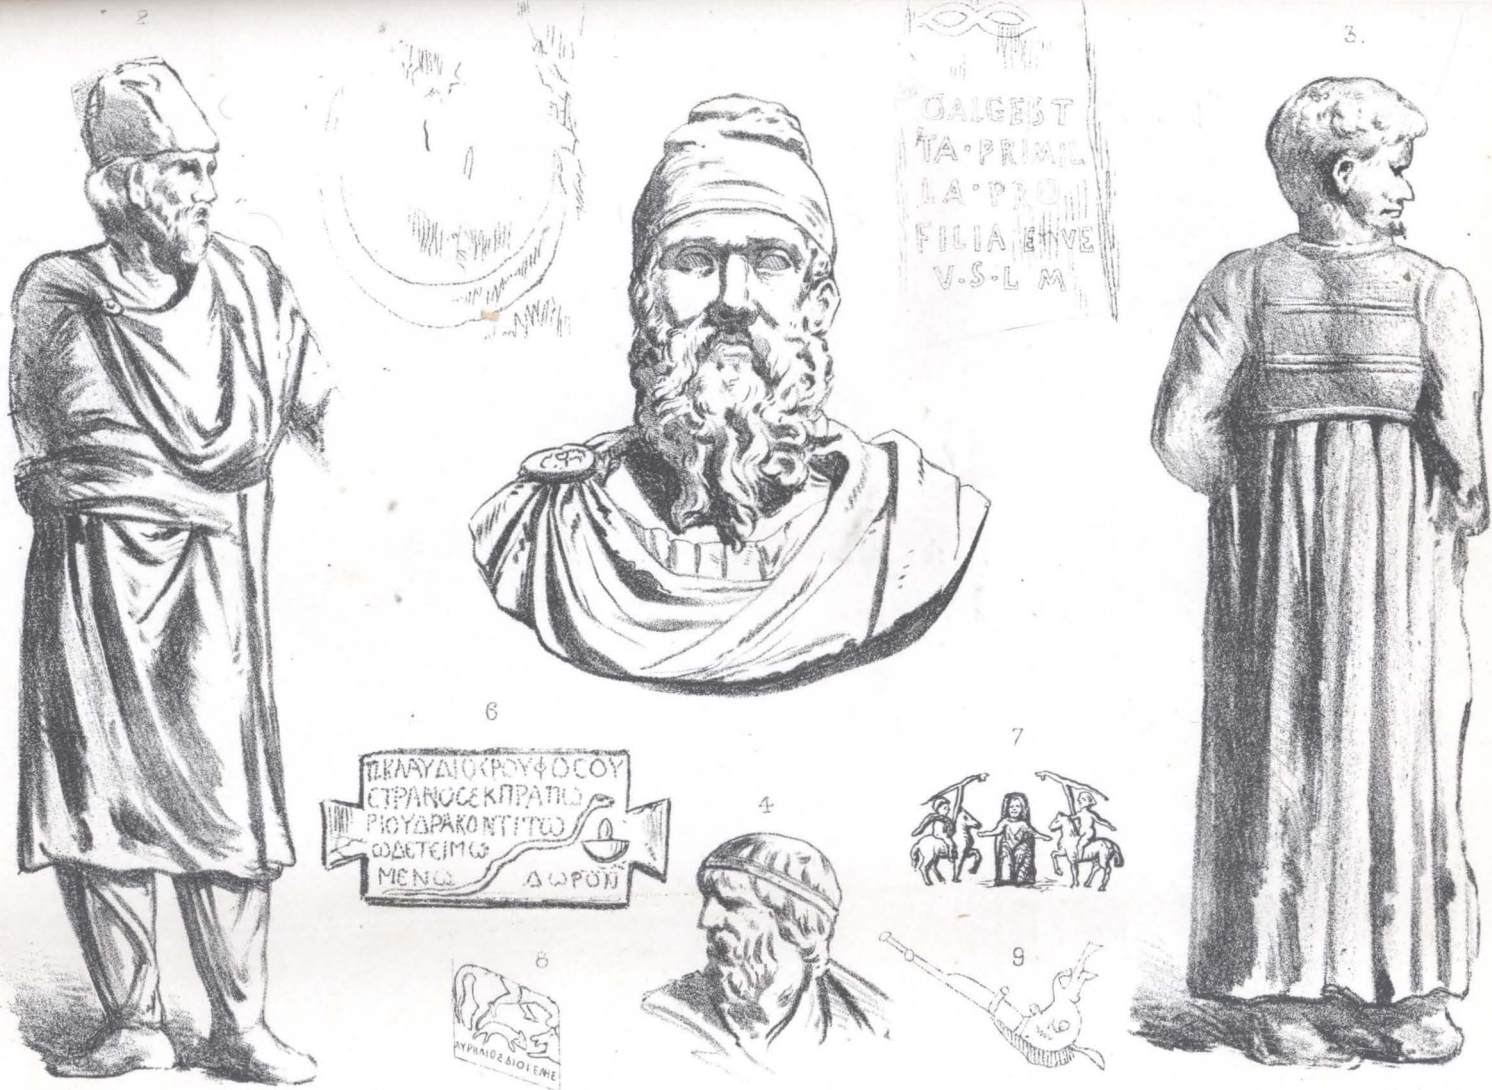 2
3.
OALGEST
TA·PRIMIL
LA·PRO
FILIA E VE
V·S·L M
6
Π.ΚΛΑΥΔΙΟϹΡΟΥΦΟϹΟΥ
ϹΤΡΑΝΟϹΕΚΠΡΑΠΩ
ΡΙΟΥΔΡΑΚΟΝΤΙΤΩ
ΩΔΕΤΕΙΜΩ
ΜΕΝΩ ΔΩΡΟΝ
7
4
8
ΑΥΡΗΛΙΟΣΔΙΟΓΕΝΗΣ
9